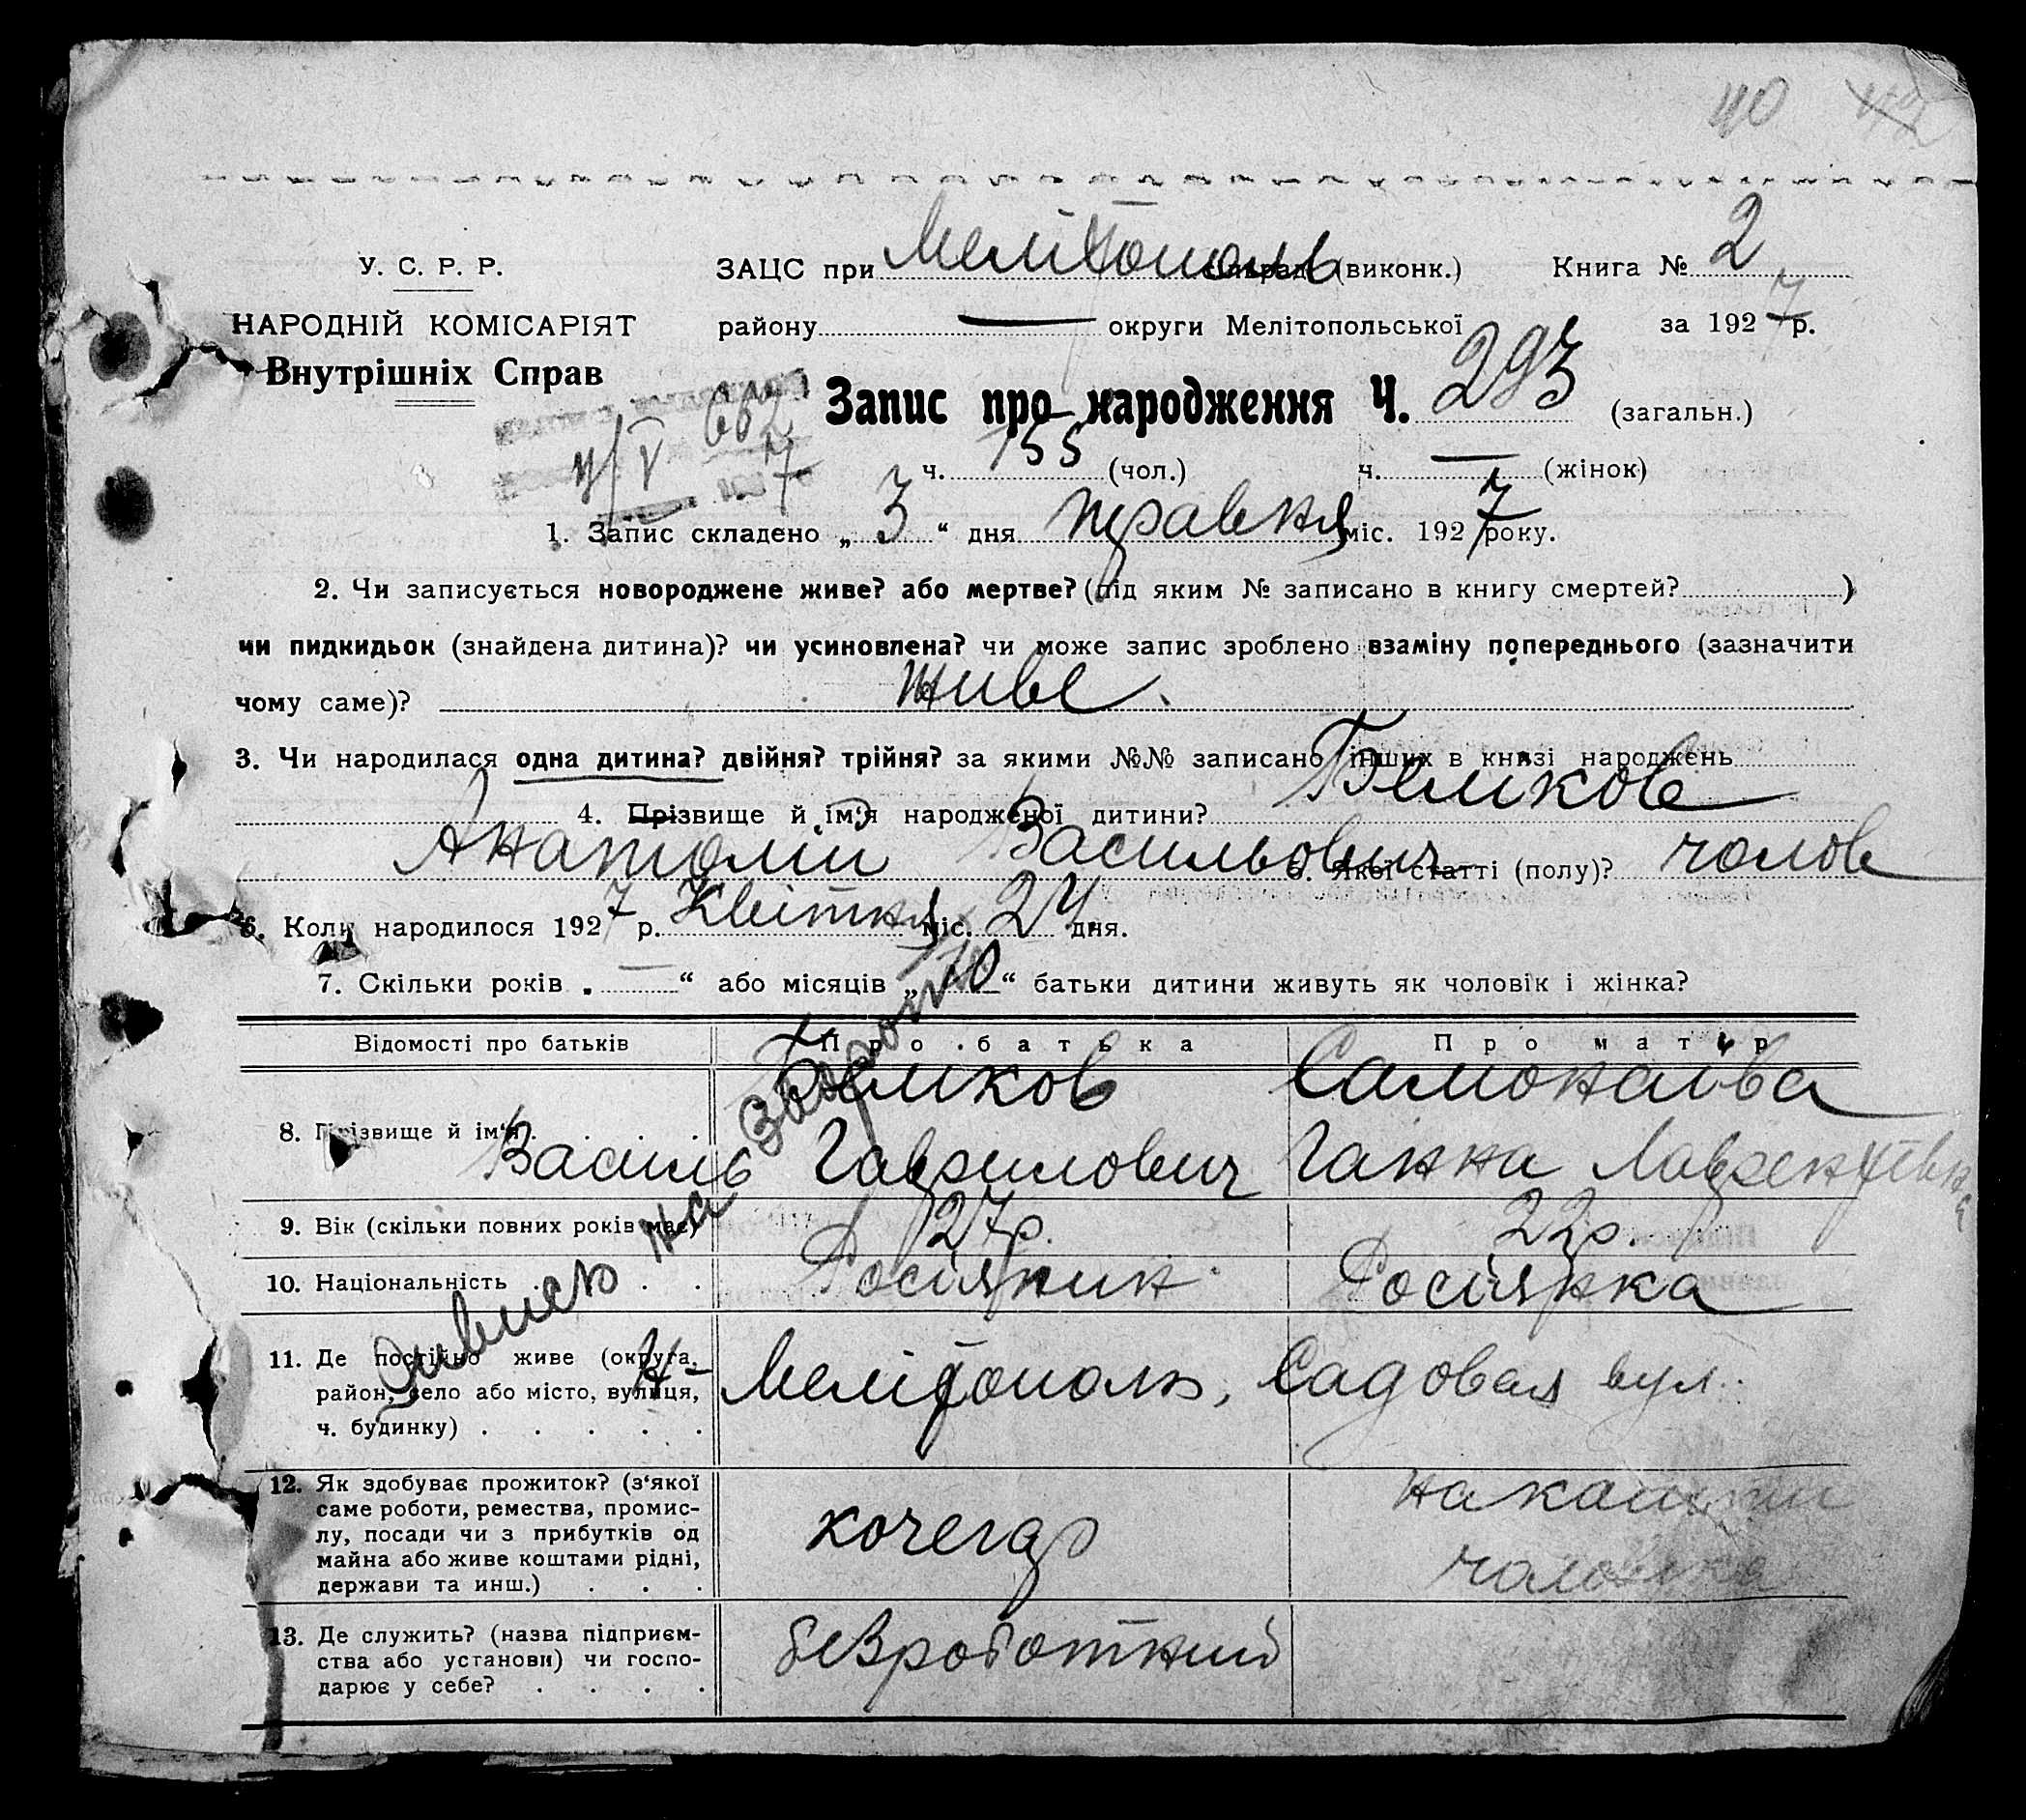 40 42
У. С. Р. Р.
НАРОДНІЙ КОМІСАРІЯТ
Внутрішніх Справ
ЗАЦС при Мелітополь сільраді (виконк.) Книга № 2
району — округи Мелітопольської за 1927 р.
Запис про народження Ч. 293 (загальн.)
662
4/V 1927
ч. 155 (чол.) ч. — (жінок)
1. Запис складено „ 3 “ дня травня міс. 1927 року.
2. Чи записується новороджене живе? або мертве? (під яким № записано в книгу смертей? )
чи пидкидьок (знайдена дитина)? чи усиновлена? чи може запис зроблено взаміну попереднього (зазначити
чому саме)? живе.
3. Чи народилася одна дитина? двійня? трійня? за якими №№ записано інших в книзі народжень
4. Прізвище й ім'я народженої дитини? Беликов
Анатолій Васильович 5. Якої статті (полу)? чолов
6. Коли народилося 1927 р. Квітня міс. 24 дня.
7. Скільки років „ — “ або місяців „ 10 “ батьки дитини живуть як чоловік і жінка?
Відомості про батьків Про батька Про матір
8. Прізвище й ім'я . . . . Беликов Василь Гаврилович Самонаіва Ганна Лаврентівна
9. Вік (скільки повних років має) 27 р. 22 р.
10. Національність . . . . Росіянин Росіянка
11. Де постійно живе (округа,
район, село або місто, вулиця,
ч. будинку) . . . . .
М- Мелітополь, Садовая вул.
12. Як здобуває прожиток? (з'якої
саме роботи, ремества, промис-
лу, посади чи з прибутків од
майна або живе коштами рідні,
держави та инш.) . . .
кочегар
на кошти
чоловіка
13. Де служить? (назва підприєм-
ства або установи) чи госпо-
дарює у себе? . . . .
безроботний
Дивись на звороті